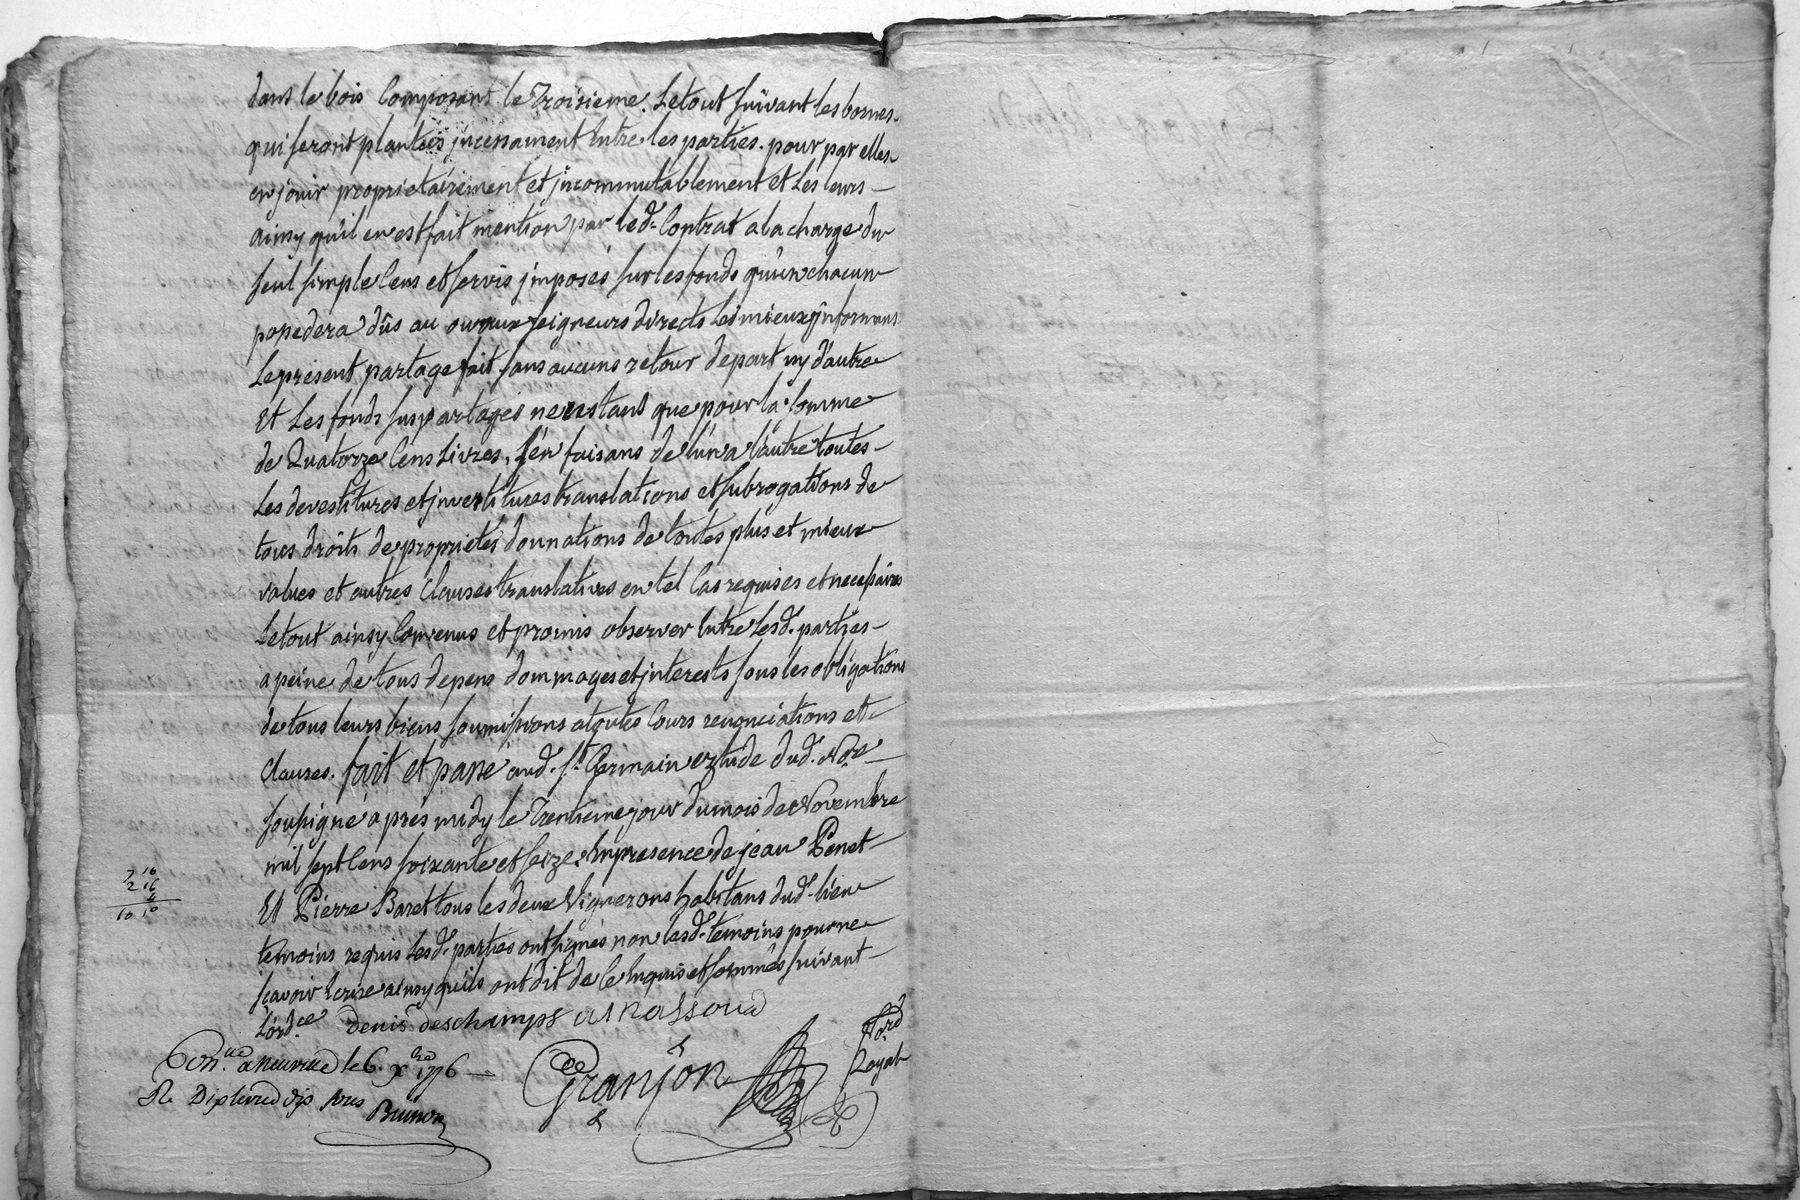 dans le bois Composant le Troisieme. Le tout suivant les bornes
qui seront plantées jncessament Entre les parties. pour par elles
en jouir proprietairement et jncommutablement et Les leurs
ainsy qu'il en est fait mention par led.t Contrat a la charge du
seul simple Cens et servis jmposés sur les fonds qu'un chacun
possedera dûs au ou aux seigneurs directs Les mieux jnformans
Le present partage fait sans aucuns retour de part ny d'autre
Et Les fonds susp artagés n'existant que pour la somme
de Quatorze Cens Livres, s'en faisans de l'un a l'autre toutes
Les devestitures et jnvestitures translations et subrogations de
tous droits de proprietés donnations de toutes plus et mieux
values et autres Clauses translatives en tel Cas requises et necessaires
Le tout ainsy Convenus et promis observer Entre Lesd. parties
a peine de tous depens dommages et jnterests sous les obligations
de tous leurs biens soumissions a toutes Cours renonciations et
Clauses. fait et passé aud. S.t Germain Etude dud. No.re
soussigné après midy le Trentieme jour du mois de Novembre
mil sept Cens soixante et seize. En presence de jean Penet
Et Pierre Baret tous les deux Vignerons habitans dud. lieu
temoins requis Lesd. parties ont signés non lesd. temoins pour ne
scavoir Ecrire ainsy qu'ils ont dit de Ce Enquis et sommés suivant
L'ord.ce denis deschamps
7 16
2 16
10 10
Con.llé a neuville le 6. X.bre 1776
R. Dix livres dix sous
Brunon
Granjon
No.re
Royal